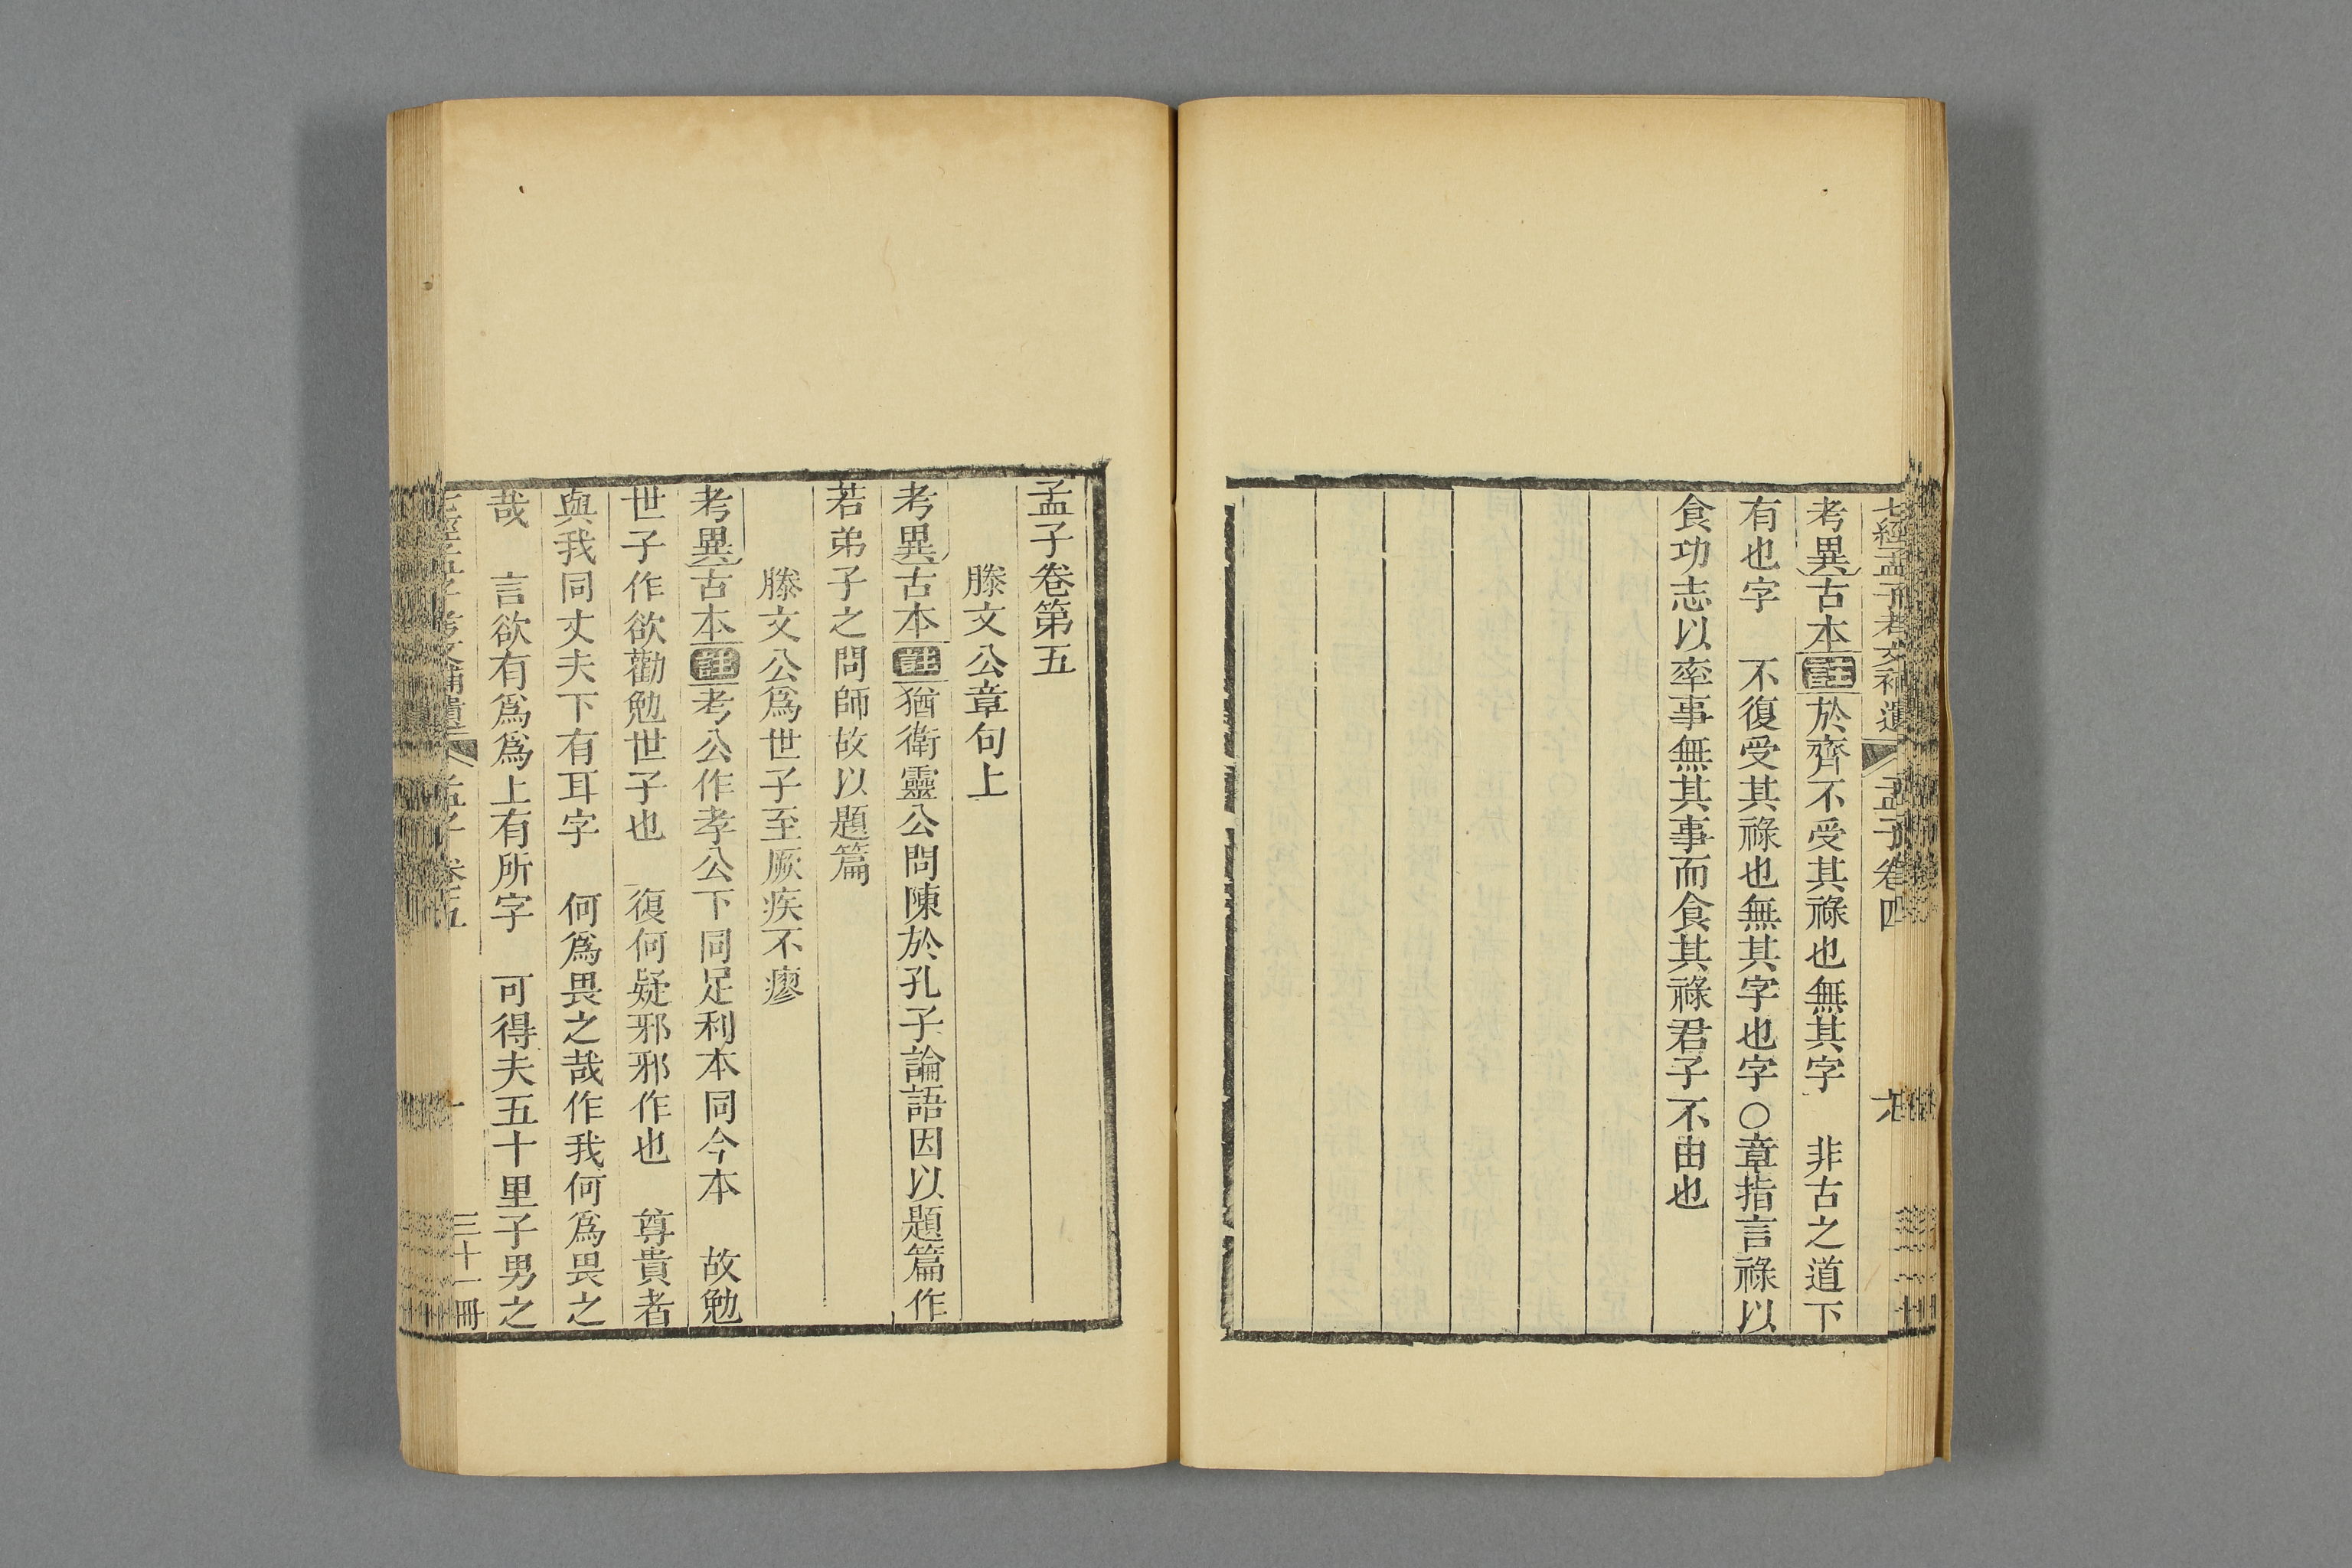 七經孟子考文補遺 孟子卷四 六
考異古本註於齊不受其祿也無其字 非古之道下
有也字 不復受其祿也無其字也字○章指言祿以
食功志以率事無其事而食其祿君子不由也
孟子卷第五
滕文公章句上
考異古本註猶衛靈公問陳於孔子論語因以題篇作
若弟子之問師故以題篇
滕文公爲世子至厥疾不瘳
考異古本註考公作孝公下同足利本同今本 故勉
世子作欲勸勉世子也 復何疑邪邪作也 尊貴者
與我同丈夫下有耳字 何爲畏之哉作我何爲畏之
哉 言欲有爲爲上有所字 可得夫五十里子男之
七經孟子考文補遺 孟子卷五 一 三十一冊